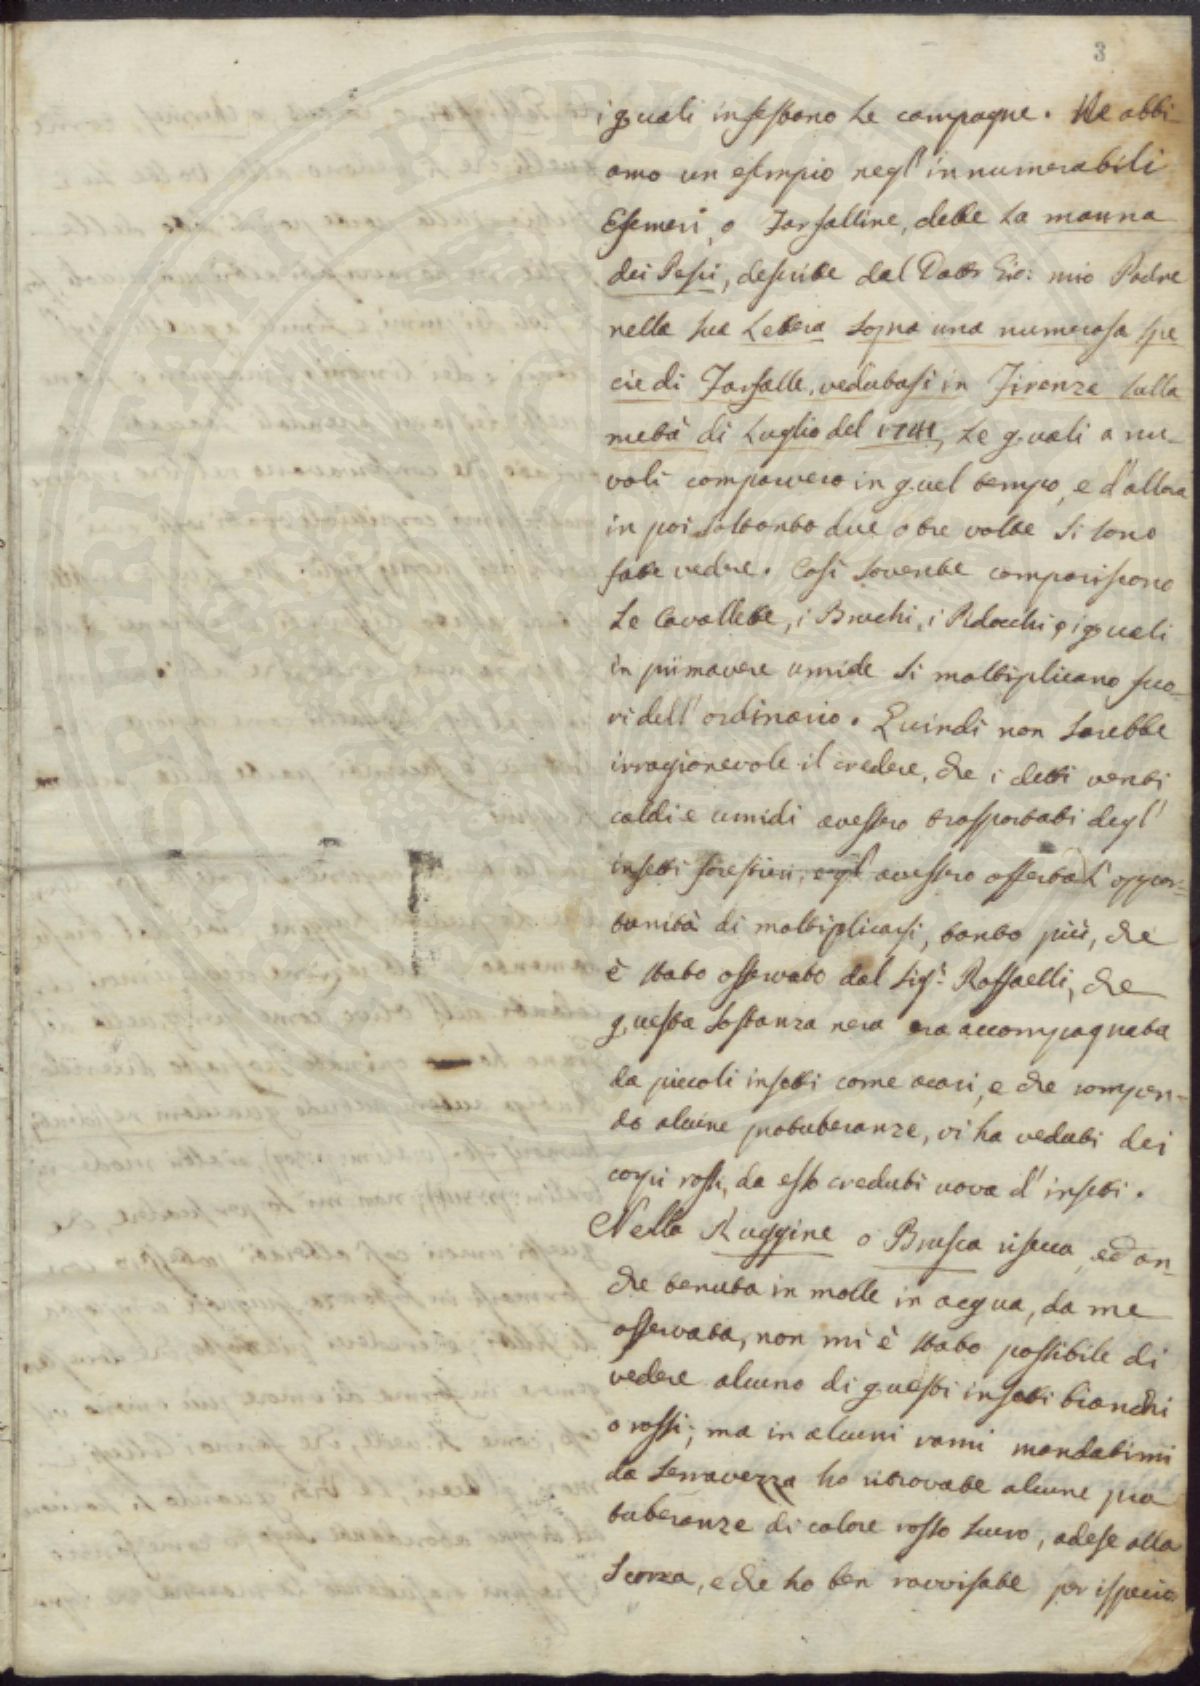 3
i quali infestano le campagne. Ne abbi-
amo un esempio negl' innumerabili
Efemeri, o Farfalline, dette la manna
dei Pesci, descritte dal Dottr Gio: mio Padre
nella sua Lettera sopra una numerosa spe
cie di Farfalle, vedutasi in Firenze sulla
metà di Luglio del 1741, le quali a nu-
voli comparvero in quel tempo, e d'allora
in poi soltanto due o tre volte si sono
fatte vedere. Così sovente compariscono
le Cavallette, i Bruchi, i Pidocchi, i quali
in primavere umide si moltiplicano fuo-
ri dell' ordinario. Quindi non sarebbe
irragionevole il credere, che i detti venti
caldi e umidi avessero trasportati degl'
insetti forestieri, avessero offerta l' oppor-
tunità di moltiplicarsi, tanto più, che
è stato osservato dal Sigr. Raffaelli, che
questa sostanza nera era accompagnata
da piccoli insetti come acari, e che rompen-
do alcune protuberanze, vi ha veduti dei
corpi rossi, da esso creduti uova d' insetti.
Nella Ruggine o Brusca risecca, ed an-
che tenuta in molle in acqua, da me
osservata, non mi è stato possibile di
vedere alcuno di questi insetti bianchi
o rossi; ma in alcuni rami mandatimi
da Serravezza ho ritrovate alcune pro
tuberanze di colore rosso scuro, adese alla
Scorza, e che ho ben ravvisate per ispecie